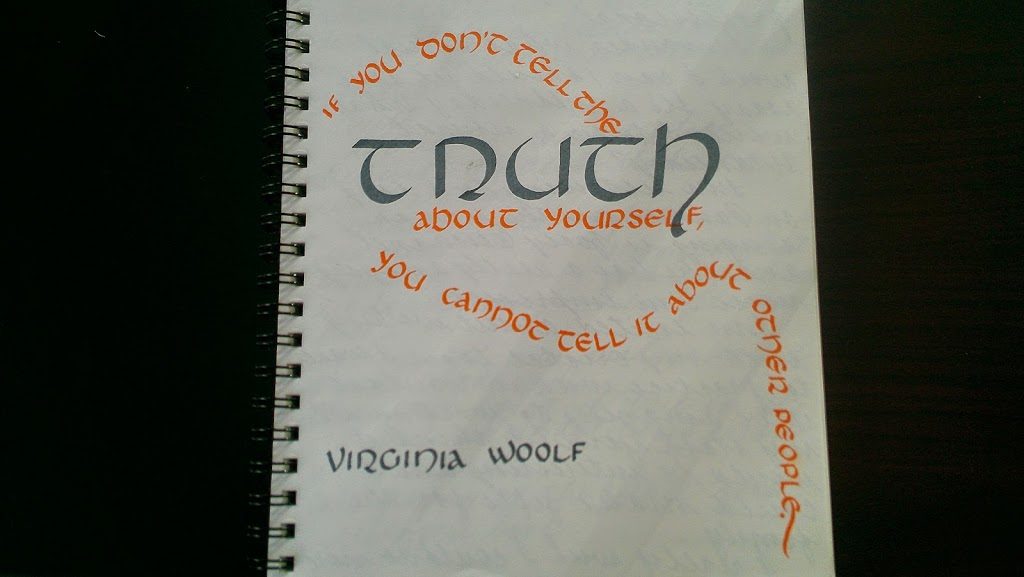 IF YOU DON'T TELL THE
TRUTH
ABOUT YOURSELF,
YOU CANNOT TELL IT ABOUT OTHER PEOPLE.
VIRGINIA WOOLF